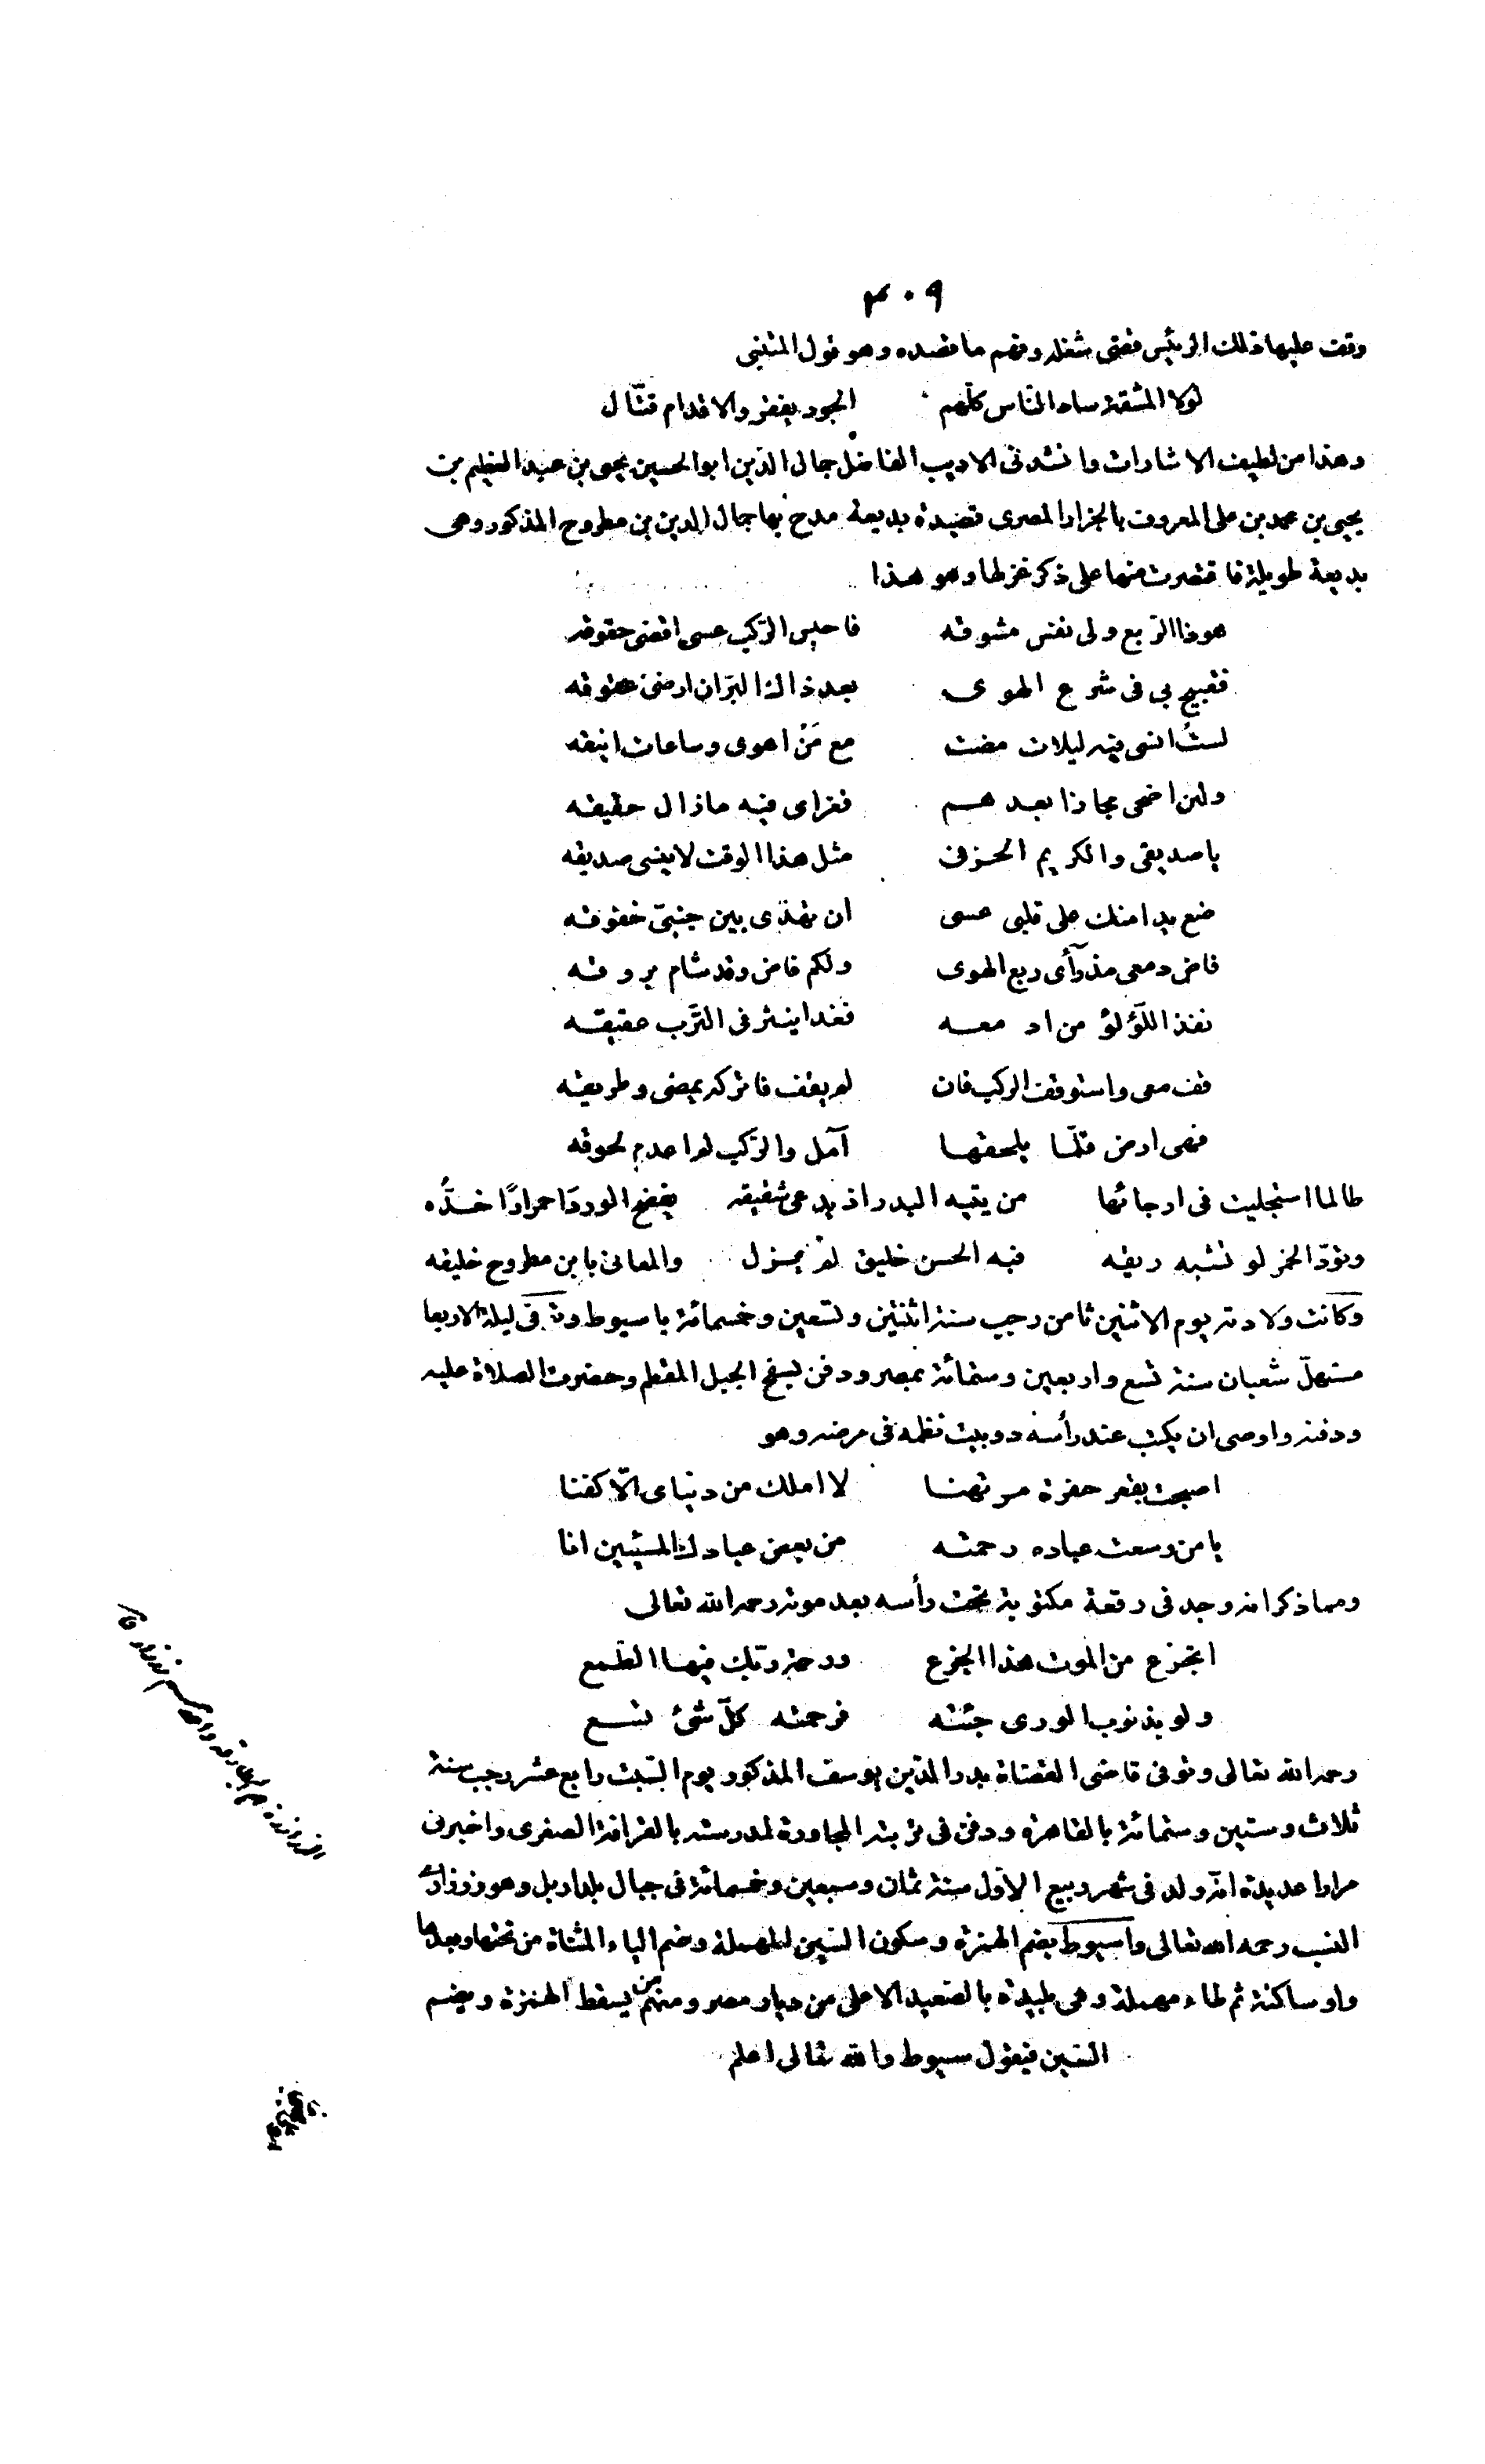 ٣٠٩
وقف عليها ذلك الرئيس قضى شغله وفهم ما قصده وهو قول المتنبى
لولا المشقة ساد الناس كلّهم الجود يفقر والاقدام قتّال
وهذا من لطيف الاشارات وانشدنى الاديب الفاضل جمال الدّين ابو الحسين يحيى بن عبد العظيم بن
يحيى بن محمد بن على المعروف بالجزار المصرى قصيدة بديعة مدح بها جمال الدين بن مطروح المذكور وهى
بديعة طويلة فاقتصرت منها على ذكر غزلها وهو هذا
هوذا الرّبع ولى نفس مشوقه فاحبس الرّكب عسى اقضى حقوقه
فقبيح بى فى شرع الهوى بعد ذاك البرّ ان ارضى عقوقه
لستُ انسى فيه ليلات مضت مع مَنْ اهوى وساعات انيقه
ولئن اضحى مجازا بعدهم فغرامى فيه مازال حقيقه
يا صديقى والكريم الحرّ فى مثل هذا الوقت لا ينسى صديقه
ضع يدا منك على قلبى عسى ان تهدّى بين جنبىّ خفوقه
فاض دمعى مذ رآى ربع الهوى ولكم فاض وقد شام بروقه
نفذ اللّؤلؤ من ادمعه فغدا ينثر فى التّرب عقيقه
قف معى واستوقف الركب فان لم يقف فاتركه يمضى وطريقه
فهى ارض قلّما يلحقها آمل والرّكب لم اعدم لحوقه
طالما استجليت فى ارجائها من يتيه البدر اذ يدعى شقيقه يفضح الورد احمرارًا خدُّه
وتودّ الخمر لو تشبه ريقه فبه الحسن خليق لم يزل والمعانى بابن مطروح خليقه
وكانت ولادته يوم الاثنين ثامن رجب سنة اثنتين وتسعين وخمسمائة باسيوط وتوفى ليلة الاربعا
مستهلّ شعبان سنة تسع واربعين وستمائة بمصر ودفن بسفح الجبل المقطم وحضرت الصلاة عليه
ودفنه واوصى ان يكتب عند رأسه دوبيت نظمه فى مرضه وهو
اصبحت بقعر حفرة مرتهنا لا املك من دنياى الّا كفنا
يا من وسعت عباده رحمته من بعض عبادك المسيئين انا
ومما ذكر انه وجد فى رقعة مكتوبة تحت رأسه بعد موته رحمه الله تعالى
اتجزع من الموت هذا الجزع ورحمة ربّك فيها الطّمع
ولو بذنوب الورى جئته فرحمته كلّ شئ تسع
رحمه الله تعالى وتوفى قاضى القضاة بدر الدّين يوسف المذكور يوم السّبت رابع عشر رجب سنة
ثلاث وستين وستمائة بالقاهرة ودفن فى تربته المجاورة لمدرسته بالقرافة الصغرى واخبرنى
مرارا عديدة انّه ولد فى شهر ربيع الاوّل سنة ثمان وسبعين وخمسمائة فى جبال بلد اربل وهو زرزارىّ
النسب رحمه الله تعالى واسيوط بضم الهمزة وسكون السّين المهملة وضم الياء المثناة من تحتها وبعدها
واو ساكنة ثم طاء مهملة وهى بليدة بالصّعيد الاعلى من ديار مصر ومنهم من يسقط الهمزة ويضم
السّين فيقول سيوط والله تعالى اعلم